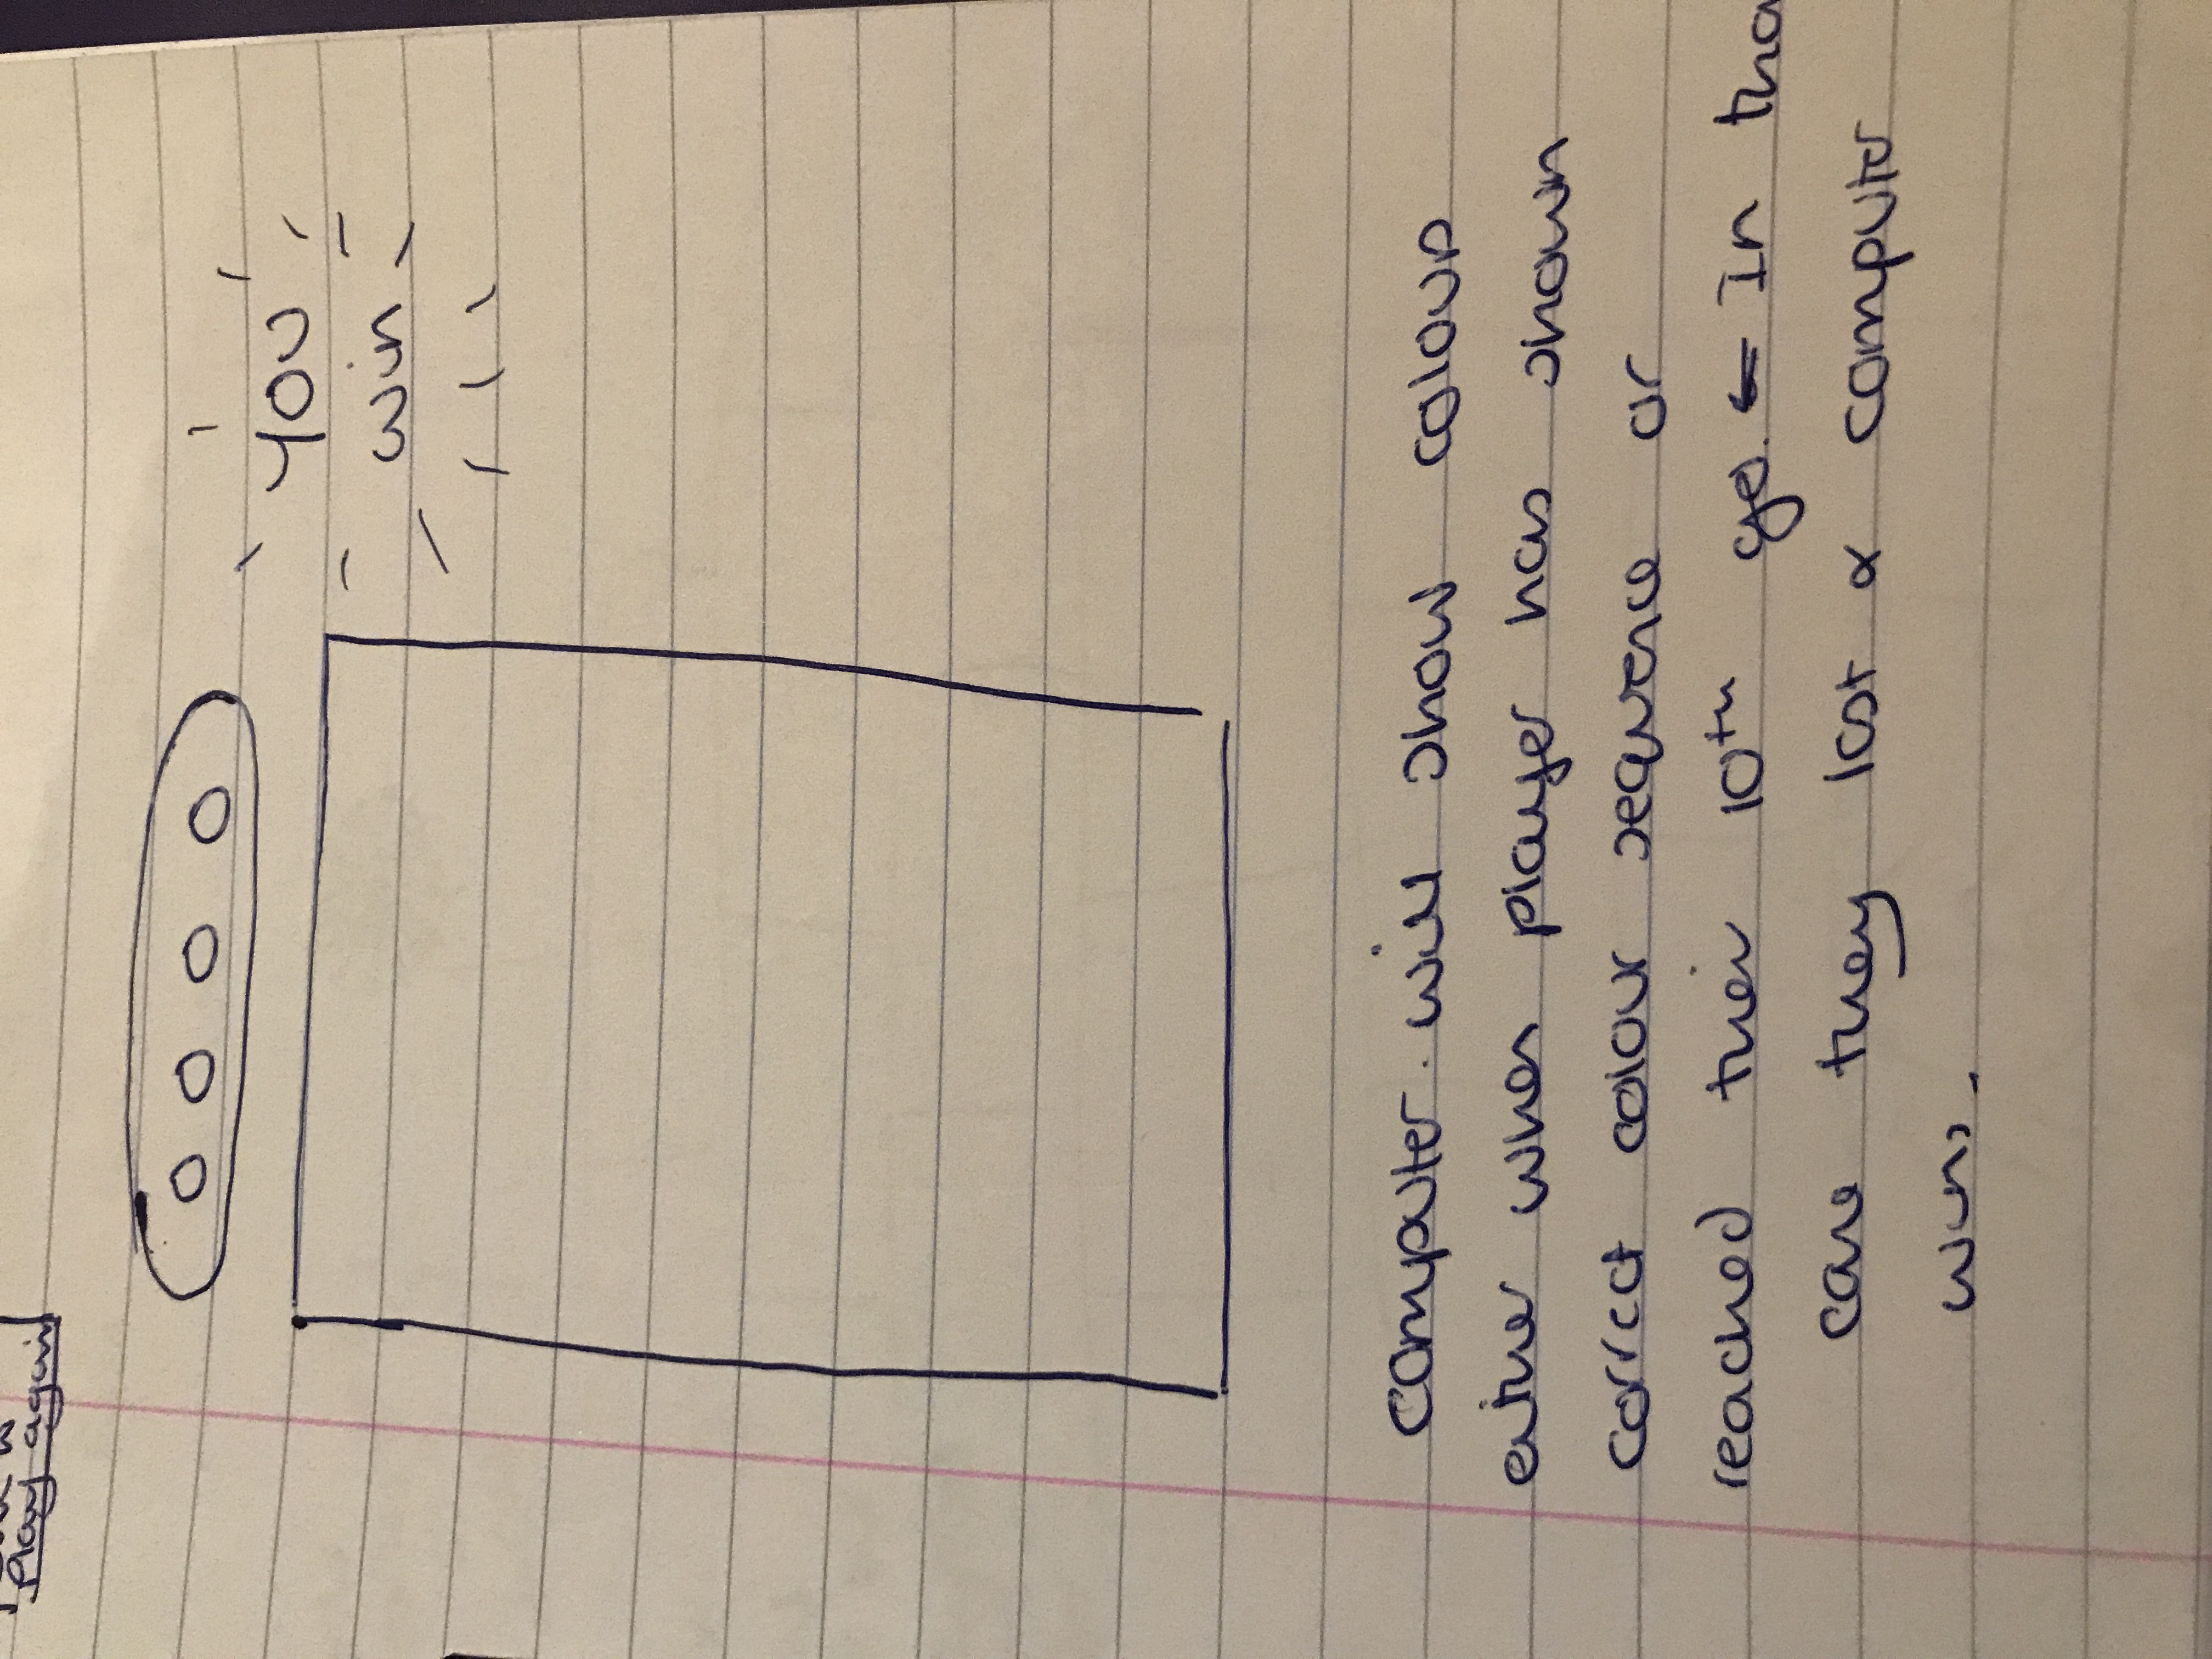 Play again
YOU
win
computer will show colour
either when player has shown
correct colour sequence or
reached their 10th go. ← In tha
case they lost & computer
wins.